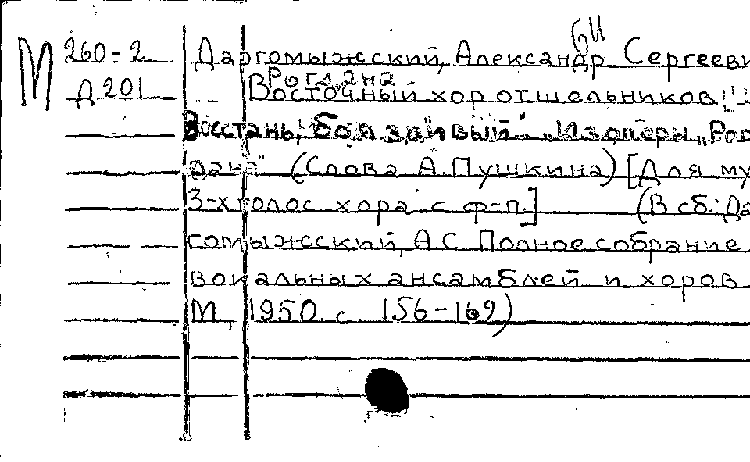 БИ
М 260-2 Даргомыжский, Александр Сергееви
Д 201 Рогдана
Восточный хор отшельников:
Восстань, боязливый" Из оперы „Рог
дана" (Слова А. Пушкина) [Для му
3-х голос хора с ф-п.] (В сб.: Да
гомыжский, А С Полное собрание
вокальных ансамблей и хоров
М 1950 с 156-169)